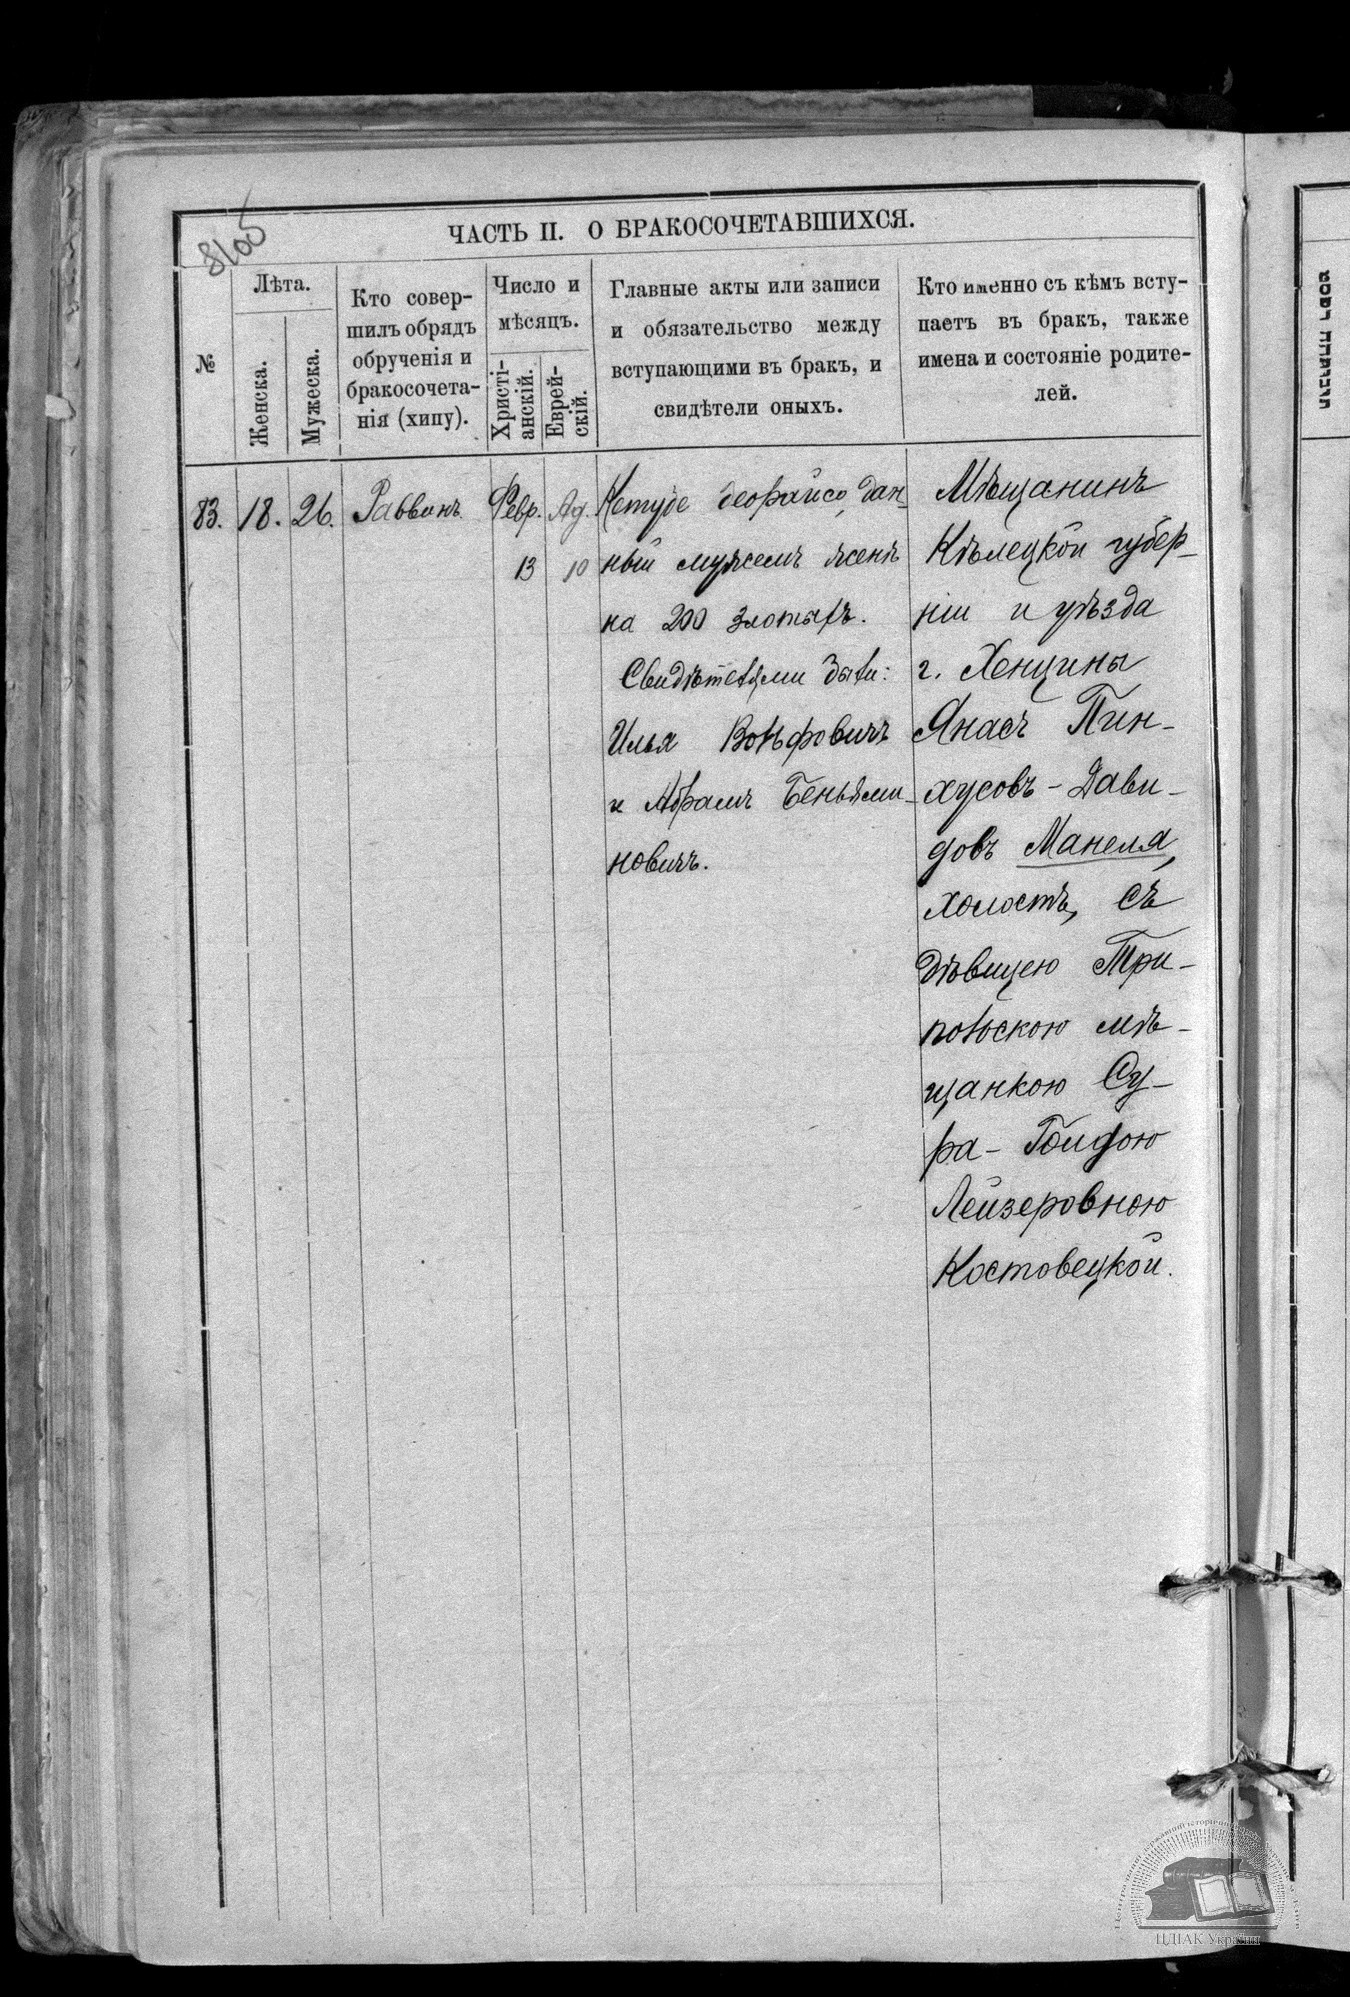 8/об
ЧАСТЬ II. О БРАКОСОЧЕТАВШИХСЯ.
№
Лѣта.
Женска.
Мужеска.
Кто совер-
шилъ обрядъ
обрученія и
бракосочета-
нія (хипу).
Число и
мѣсяцъ.
Христі-
анскій.
Еврей-
скій.
Главные акты или записи
и обязательство между
вступающими въ бракъ, и
свидѣтели оныхъ.
Кто именно съ кѣмъ всту-
паетъ въ бракъ, также
имена и состояніе родите-
лей.
83.
18.
26.
Раввинъ
Февр.
13
Ад.
10
Кетубе деорайсо, дан-
ный мужемъ женѣ
на 200 злотыхъ.
Свидѣтелями были:
Илья Вольфовичъ
и Абрамъ Беньями-
новичъ.
Мѣщанинъ
Кѣлецкой губер-
ніи и уѣзда
г. Хенцины
Янасъ Пин-
хусовъ-Дави-
довъ Манеля,
холостъ, съ
дѣвицею Три-
польскою мѣ-
щанкою Су-
ра-Гольдою
Лейзеровною
Костовецкой.
ЦДІАК України